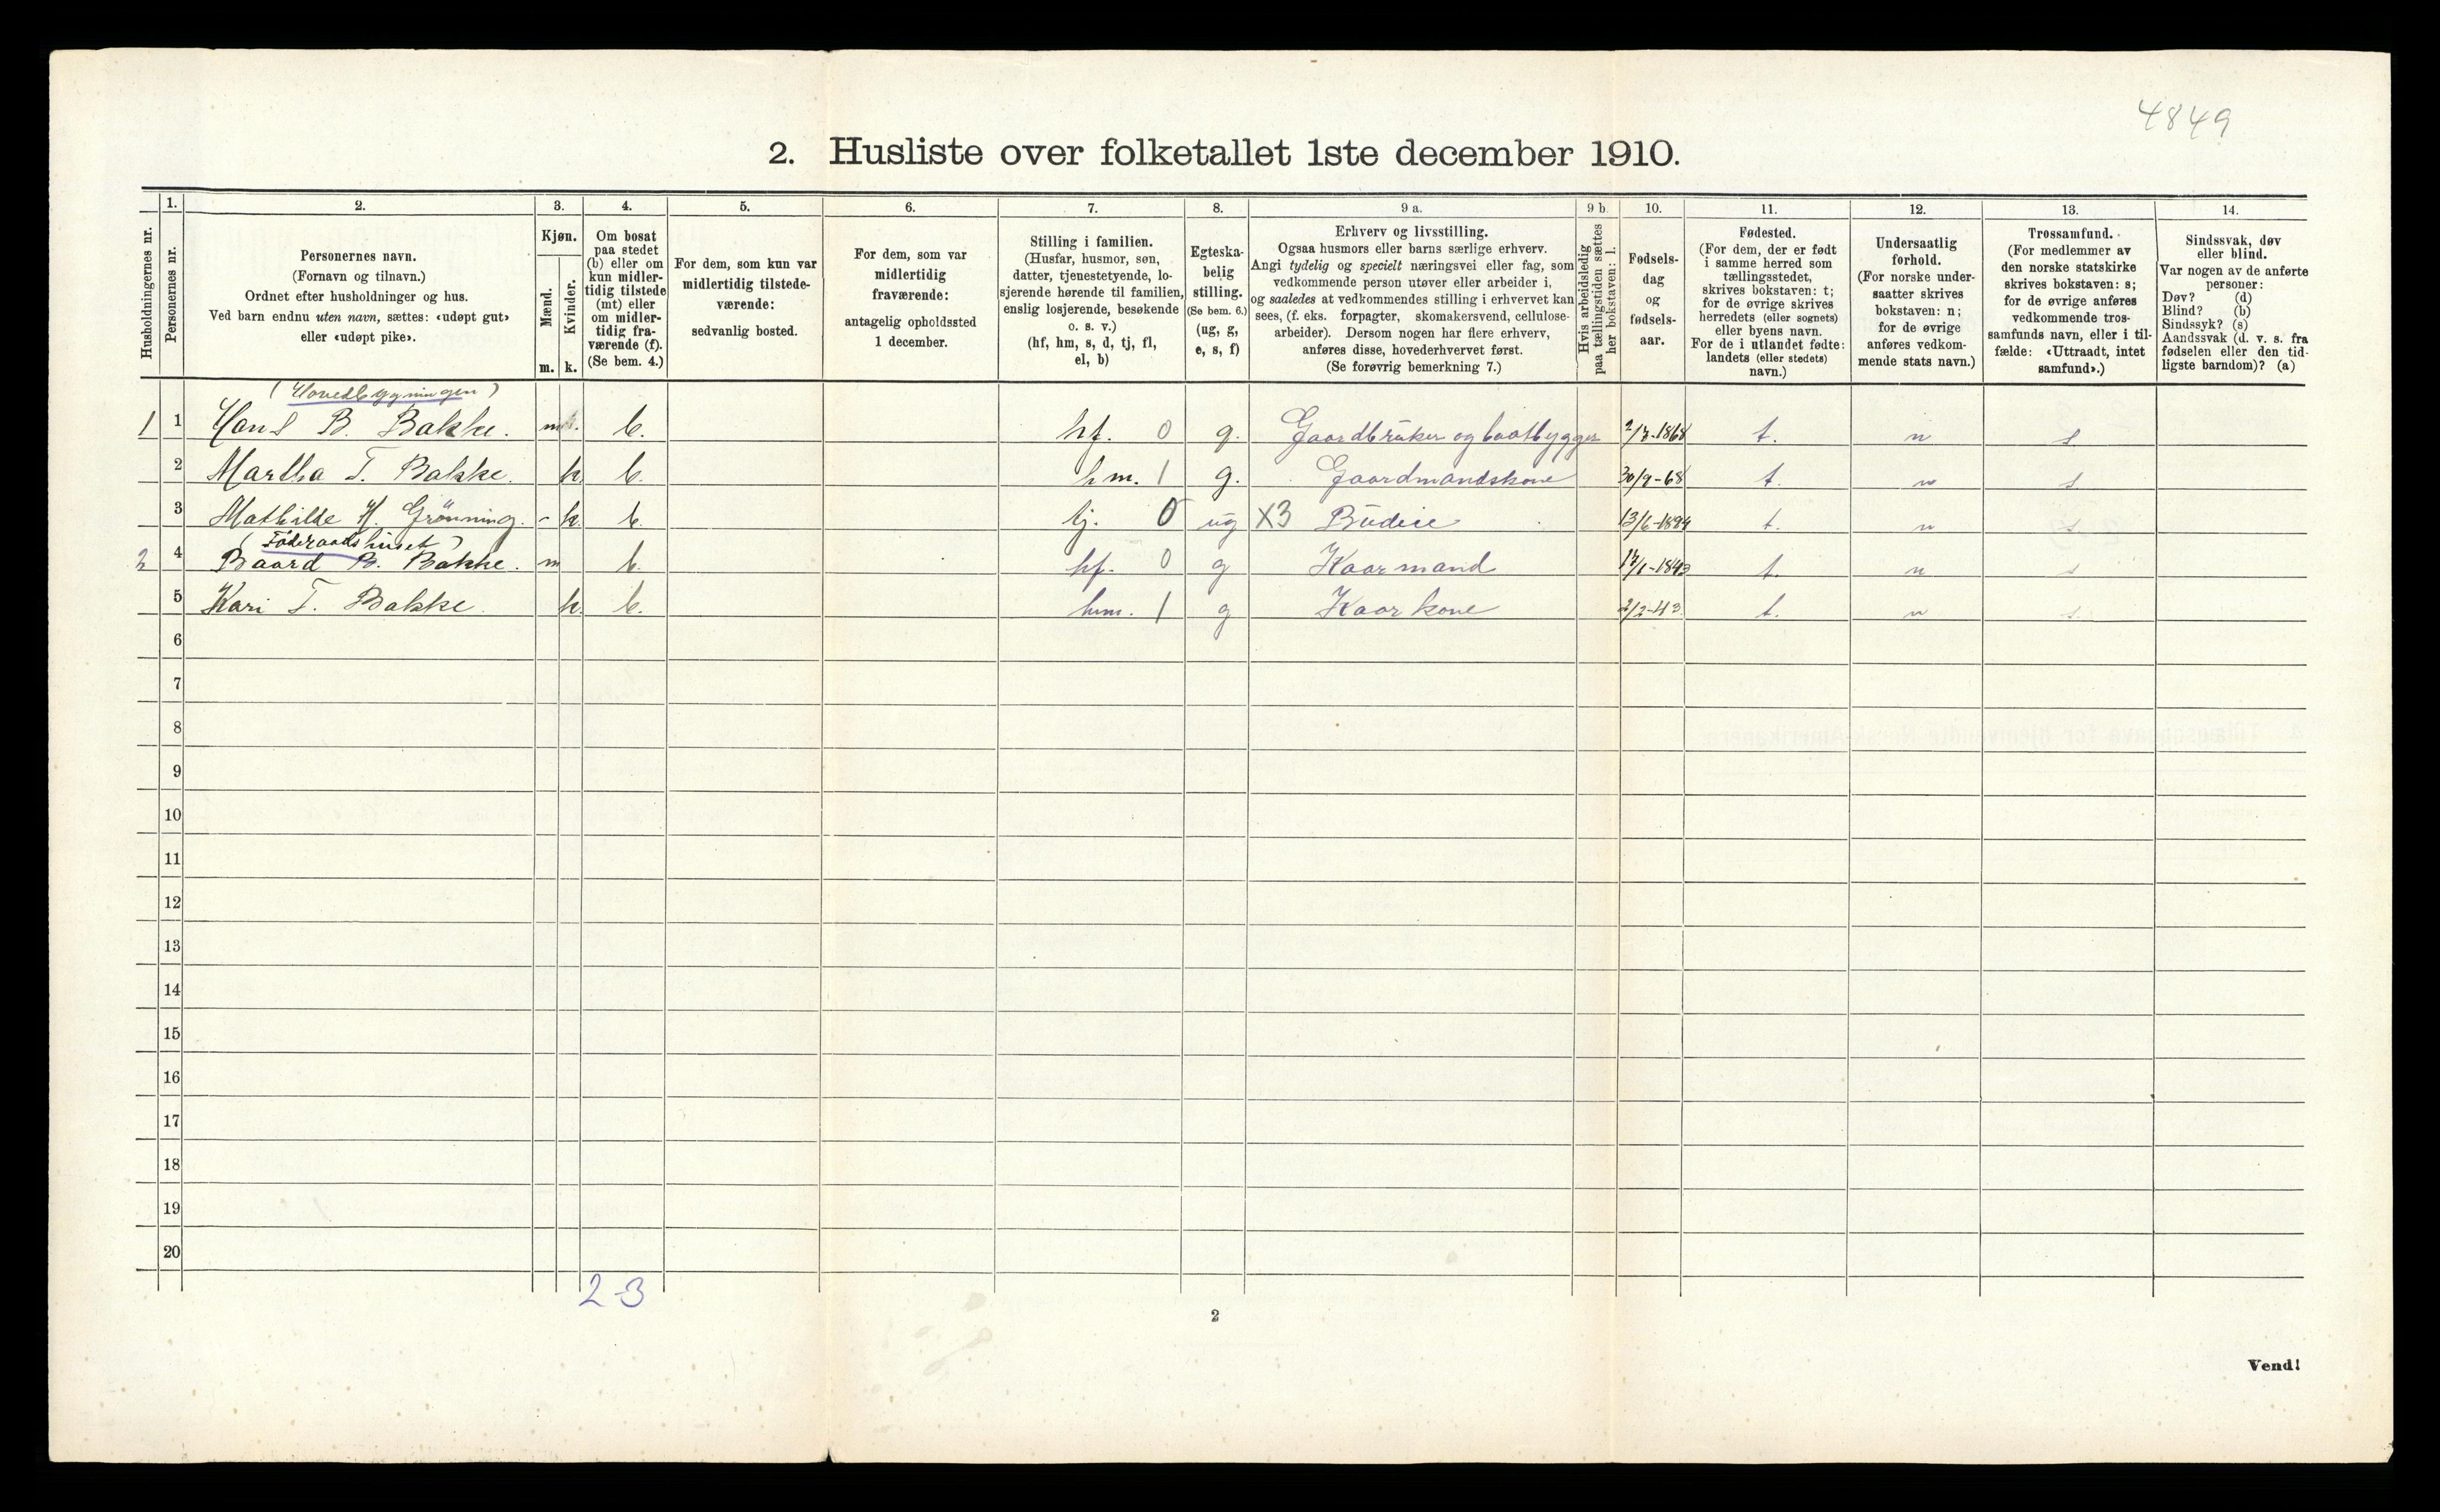 4849
2. Husliste over folketallet 1ste december 1910.
Husholdningernes nr.
1.
Personernes nr.
2.
Personernes navn.
(Fornavn og tilnavn.)
Ordnet efter husholdninger og hus.
Ved barn endnu uten navn, sættes: «udøpt gut»
eller «udøpt pike».
3.
Kjøn.
Mænd.
m.
Kvinder.
k.
4.
Om bosat
paa stedet
(b) eller om
kun midler-
tidig tilstede
(mt) eller
om midler-
tidig fra-
værende (f).
(Se bem. 4.)
5.
For dem, som kun var
midlertidig tilstede-
værende:
sedvanlig bosted.
6.
For dem, som var
midlertidig
fraværende:
antagelig opholdssted
1 december.
7.
Stilling i familien.
(Husfar, husmor, søn,
datter, tjenestetyende, lo-
sjerende hørende til familien,
enslig losjerende, besøkende
o. s. v.)
(hf, hm, s, d, tj, fl,
el, b)
8.
Egteska-
belig
stilling.
(Se bem. 6.)
(ug, g,
e, s, f)
9 a.
Erhverv og livsstilling.
Ogsaa husmors eller barns særlige erhverv.
Angi tydelig og specielt næringsvei eller fag, som
vedkommende person utøver eller arbeider i,
og saaledes at vedkommendes stilling i erhvervet kan
sees, (f. eks. forpagter, skomakersvend, cellulose-
arbeider). Dersom nogen har flere erhverv,
anføres disse, hovederhvervet først.
(Se forøvrig bemerkning 7.)
9 b.
Hvis arbeidsledig
paa tællingstiden sættes
her bokstaven: l.
10.
Fødsels-
dag
og
fødsels-
aar.
11.
Fødested.
(For dem, der er født
i samme herred som
tællingsstedet,
skrives bokstaven: t;
for de øvrige skrives
herredets (eller sognets)
eller byens navn.
For de i utlandet fødte:
landets (eller stedets)
navn.)
12.
Undersaatlig
forhold.
(For norske under-
saatter skrives
bokstaven: n;
for de øvrige
anføres vedkom-
mende stats navn.)
13.
Trossamfund.
(For medlemmer av
den norske statskirke
skrives bokstaven: s;
for de øvrige anføres
vedkommende tros-
samfunds navn, eller i til-
fælde: «Uttraadt, intet
samfund».)
14.
Sindssvak, døv
eller blind.
Var nogen av de anførte
personer:
Døv? (d)
Blind? (b)
Sindssyk? (s)
Aandssvak (d. v. s. fra
fødselen eller den tid-
ligste barndom)? (a)
(Hovedbygningen)
1 1 Hans B. Bakke. m b. hf. 0 g. Gaardbruker og baatbygger 1868 t. n s
2 Martha T. Bakke. k b. hm. 1 g. Gaardmandskone 30/9-68 t. n s
3 Mathilde H. Grönning. - k. b. tj. 0 ug X3 Budeie 13/6-1894 t. n s
(Föderaadshuset)
2 4 Baard B. Bakke. m b. hf. 0 g Kaarmand 1843 t. n s
5 Kari T. Bakke k. b. hm. 1 g Kaarkone 2/2-43 t. n s.
6
7
8
9
10
11
12
13
14
15
16
17
18
19
20
2-3
2
Vend!